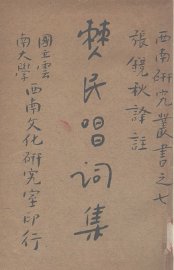 西南研究叢書之七
張鏡秋譯註
僰民唱词集
國立雲
南大學
西南文化研究室印行